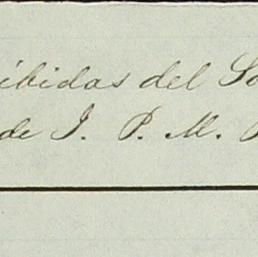 ibidas del So
de J. P. M.